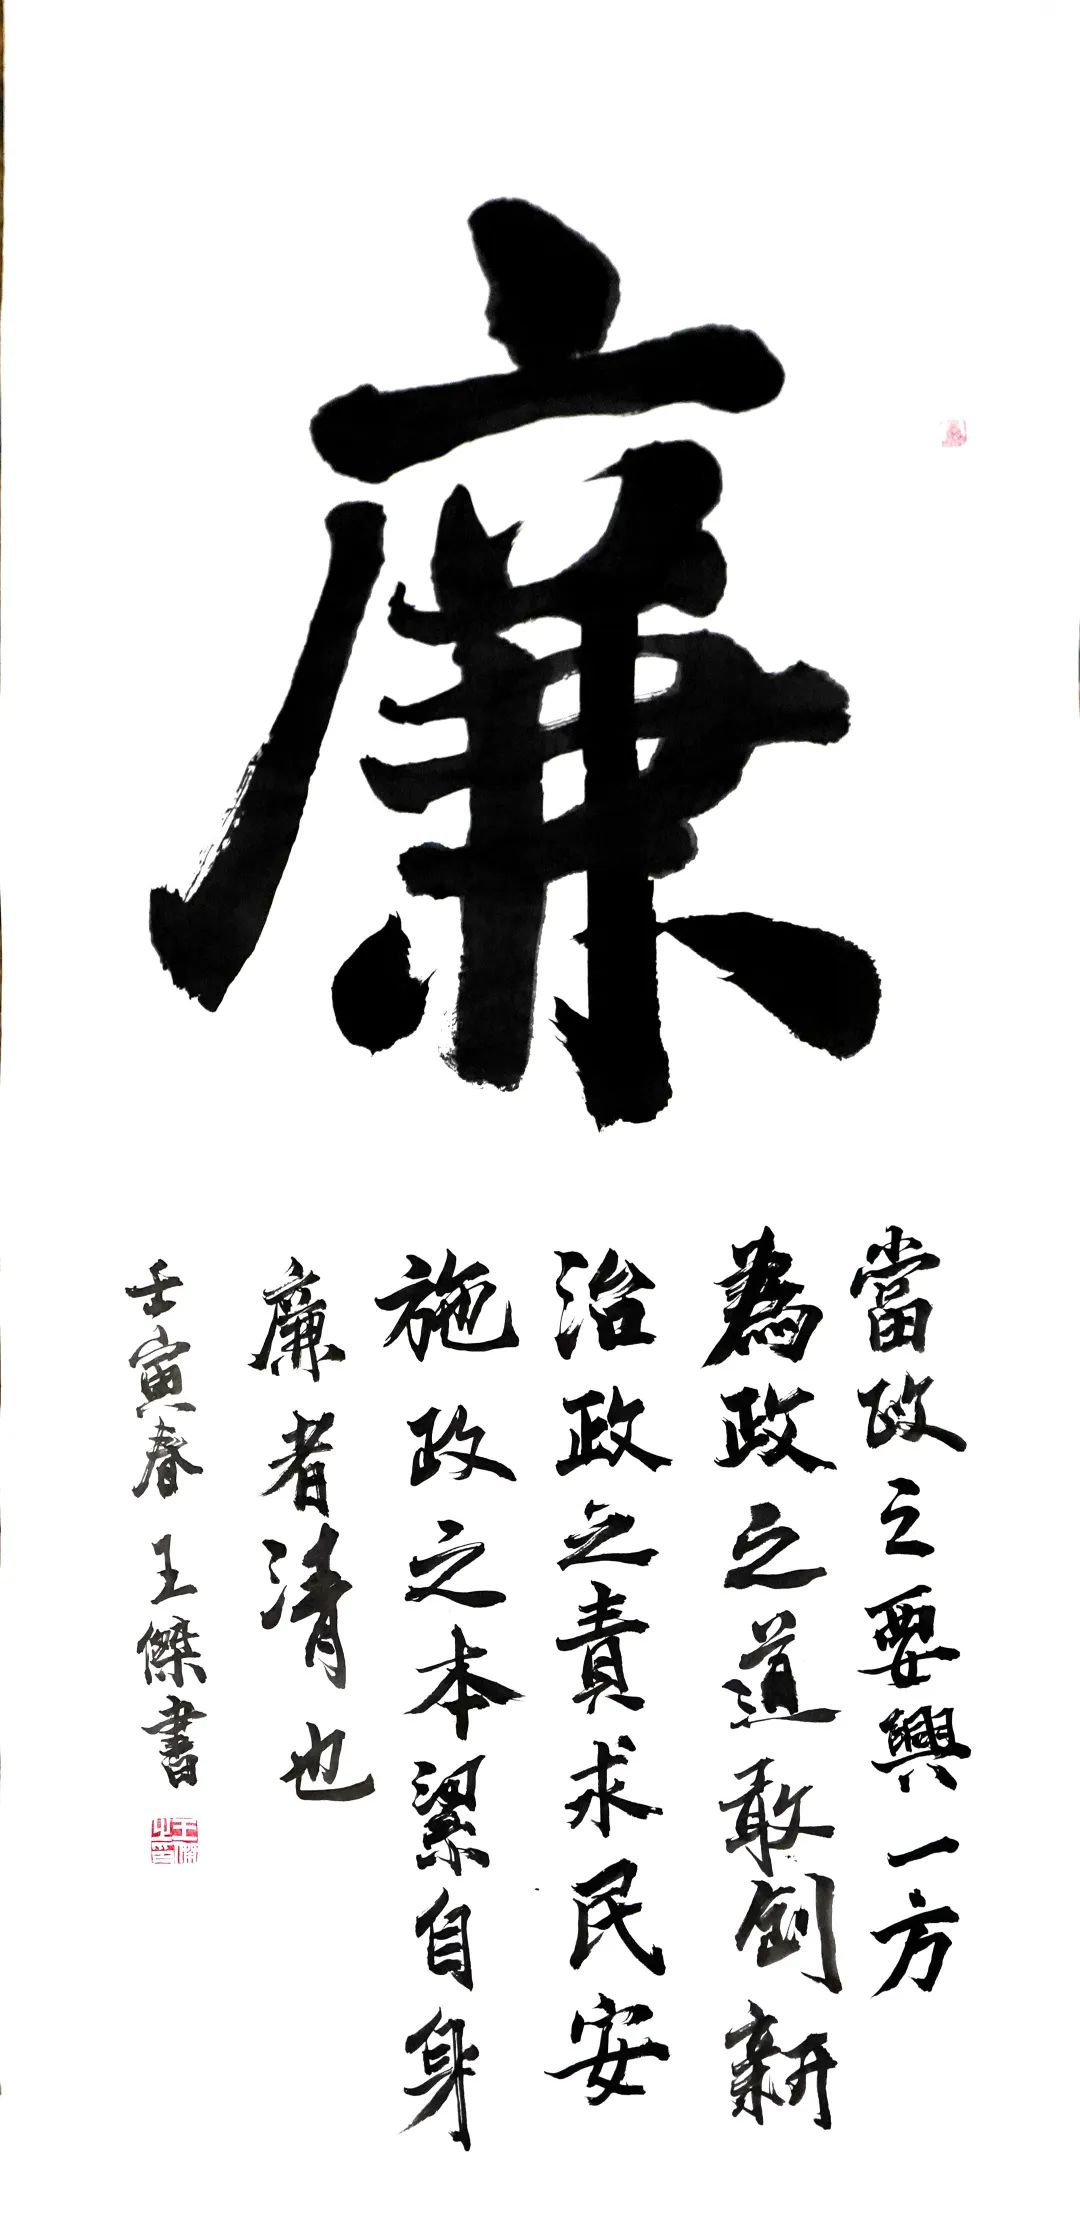 廉
當政之要興一方
為政之道敢創新
治政之責求民安
施政之本潔自身
廉者清也
壬寅春 王傑書